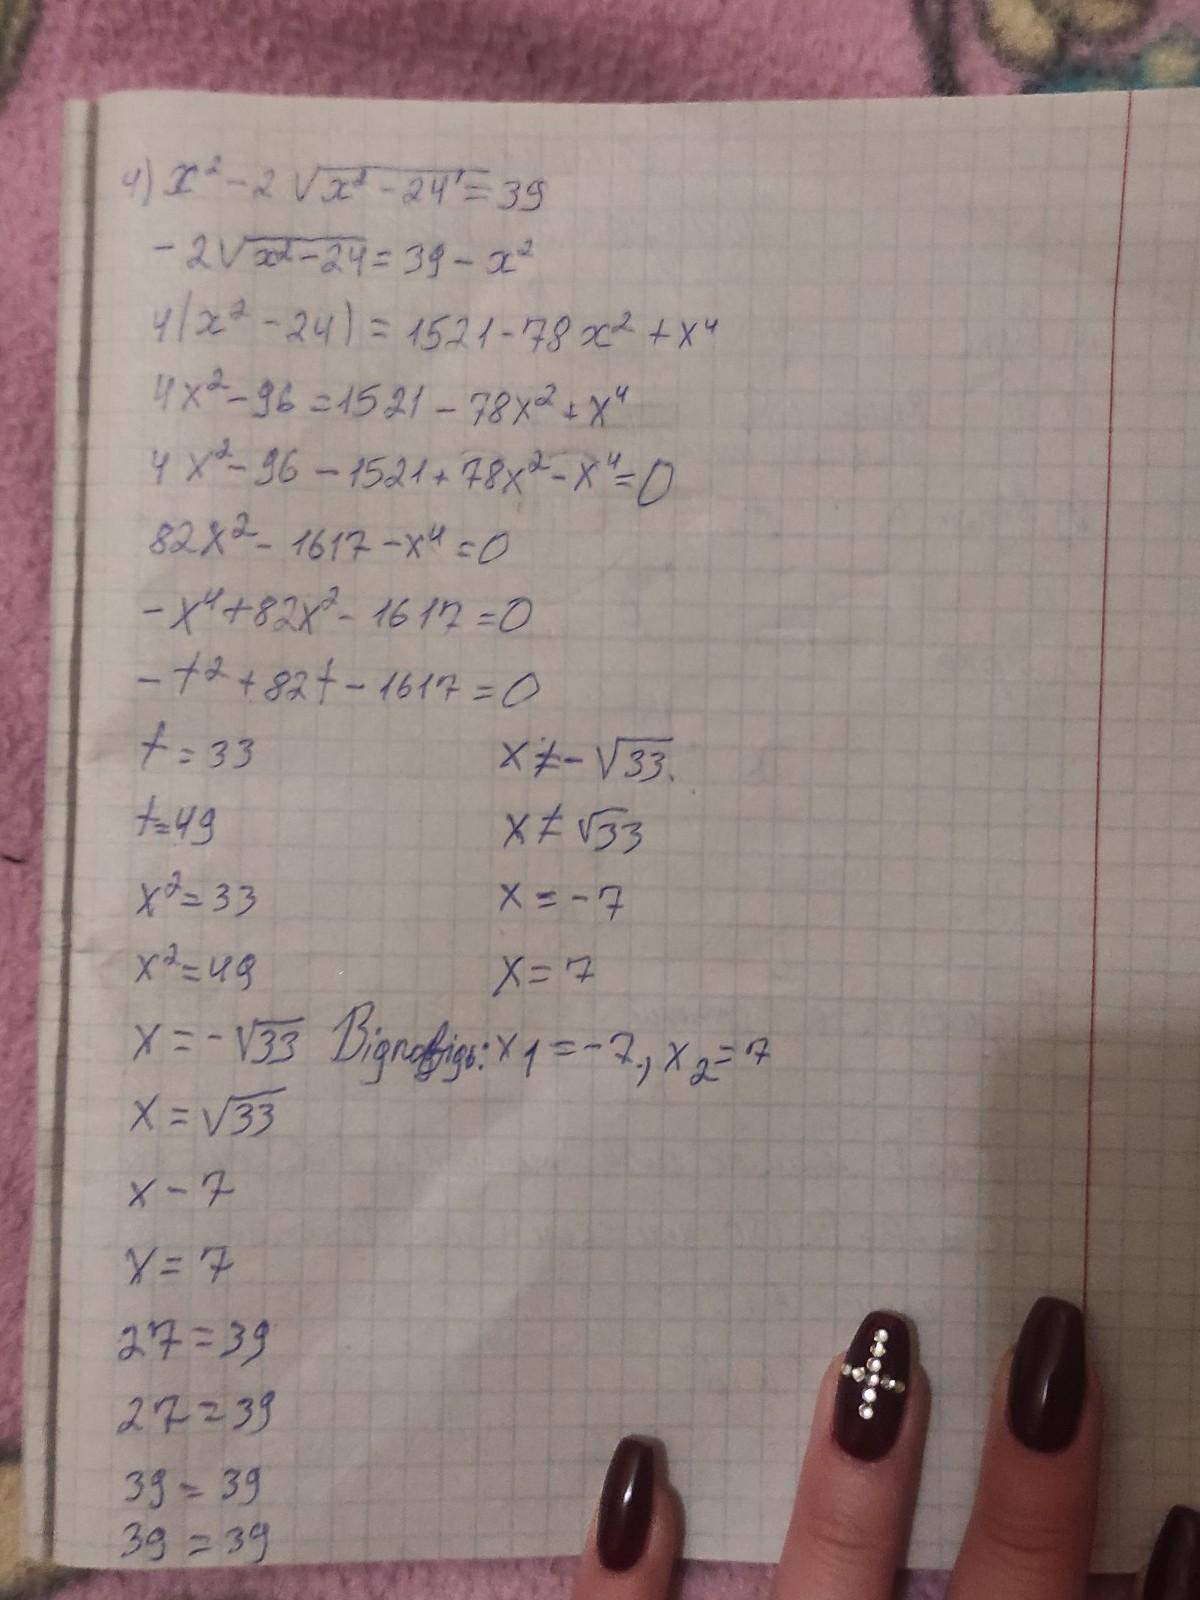 4) x² - 2√(x² - 24) = 39
-2√(x² - 24) = 39 - x²
4(x² - 24) = 1521 - 78x² + x⁴
4x² - 96 = 1521 - 78x² + x⁴
4x² - 96 - 1521 + 78x² - x⁴ = 0
82x² - 1617 - x⁴ = 0
-x⁴ + 82x² - 1617 = 0
-t² + 82t - 1617 = 0
t = 33
t = 49
x² = 33
x² = 49
x = -√33
x = √33
x - 7
x = 7
27 = 39
27 = 39
39 = 39
39 = 39
x ≠ -√33.
x ≠ √33
x = -7
x = 7
Відповідь: x₁ = -7, x₂ = 7